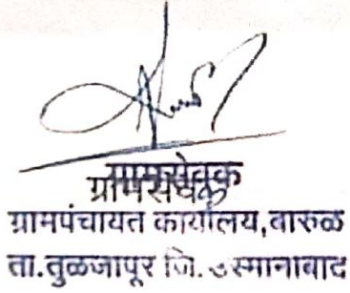 ग्रामसेवक
ग्रामसेवक
ग्रामपंचायत कार्यालय,बारुळ
ता.तुळजापूर जि. उस्मानाबाद